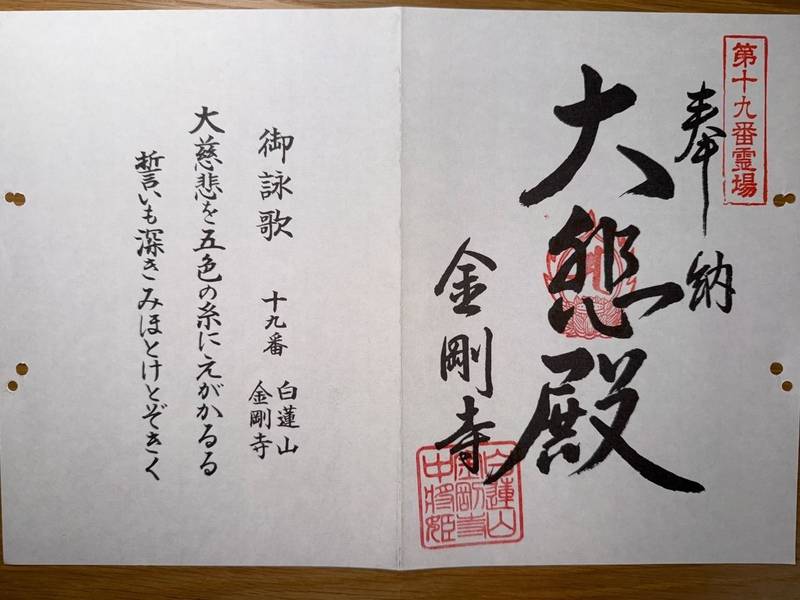 第十九番霊場
奉納
大悲殿
金剛寺
白蓮山
金剛寺
中将姫
御詠歌 十九番 白蓮山
金剛寺
大慈悲を五色の糸にえがかるる
誓いも深きみほとけとぞきく